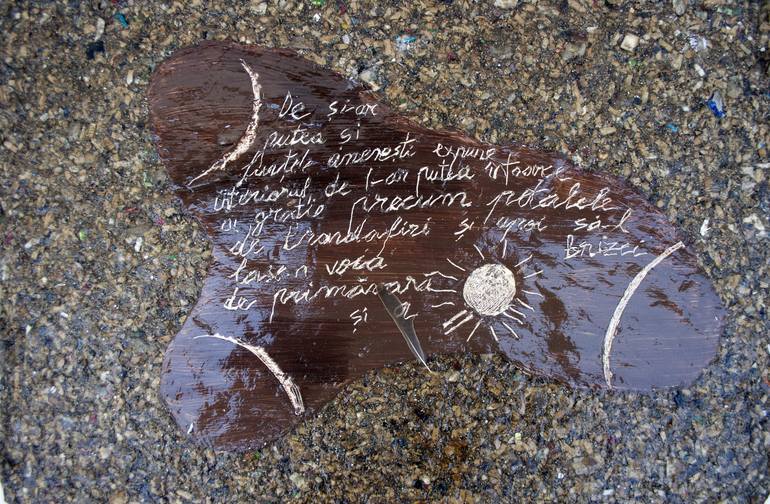 De și-ar
putea și
ființele omenești expune
interiorul, de l-ar putea întoarce
cu grație precum petalele
de trandafiri și apoi să-l
lase-n voia Brizei
de primăvară
și a